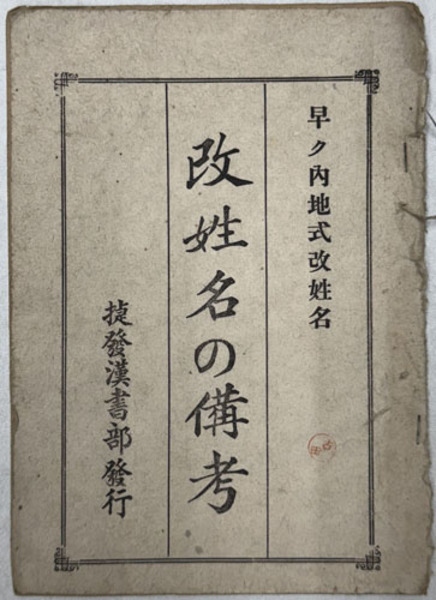 早ク內地式改姓名
改姓名の備考
捷發漢書部發行